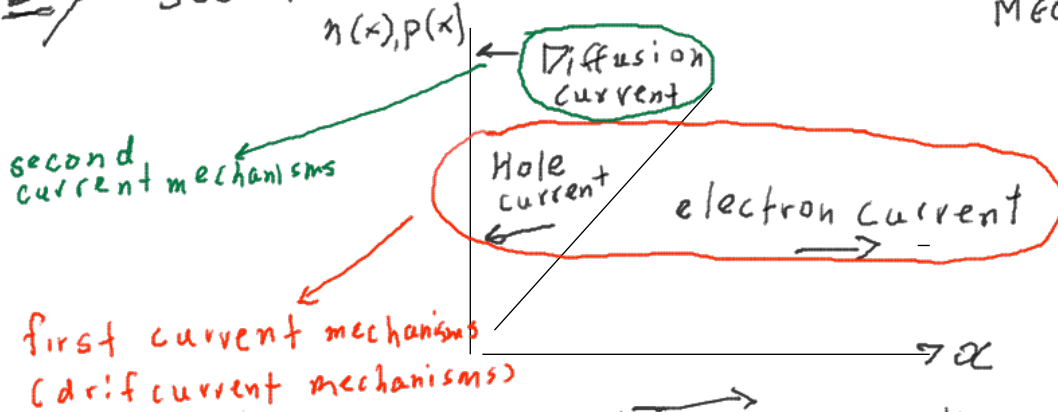 n(x),p(x)
Diffusion
current
second
current mechanisms
Hole
current
electron current
first current mechanisms
(drif current mechanisms)
x